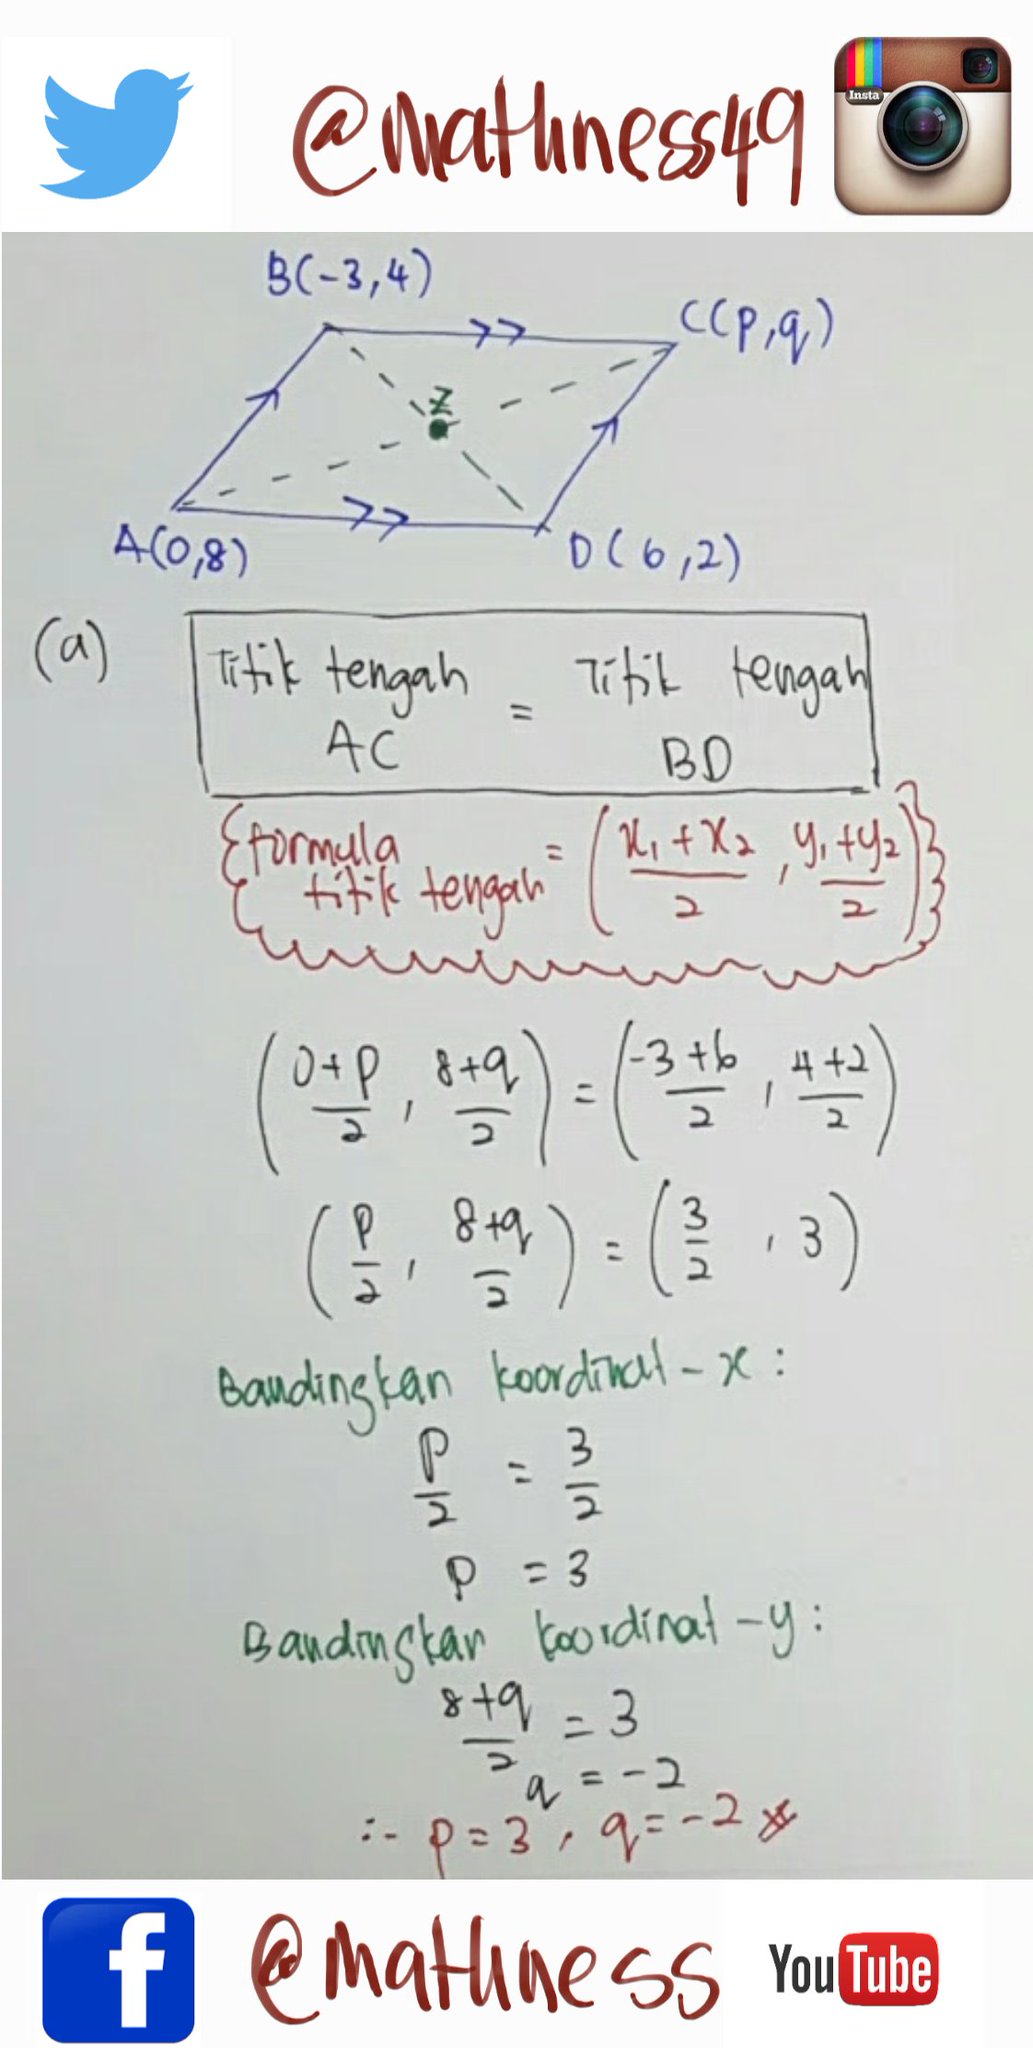 @mathness49
Insta
B(-3,4)
C(p,q)
Z
A(0,8)
D(6,2)
(a)
Titik tengah AC = Titik tengah BD
formula titik tengah = (x₁+x₂/2, y₁+y₂/2)
(0+p/2, 8+q/2) = (-3+6/2, 4+2/2)
(p/2, 8+q/2) = (3/2, 3)
Bandingkan koordinat-x:
p/2 = 3/2
p = 3
Bandingkan koordinat-y:
8+q/2 = 3
q = -2
∴ p=3, q=-2
f @mathness YouTube